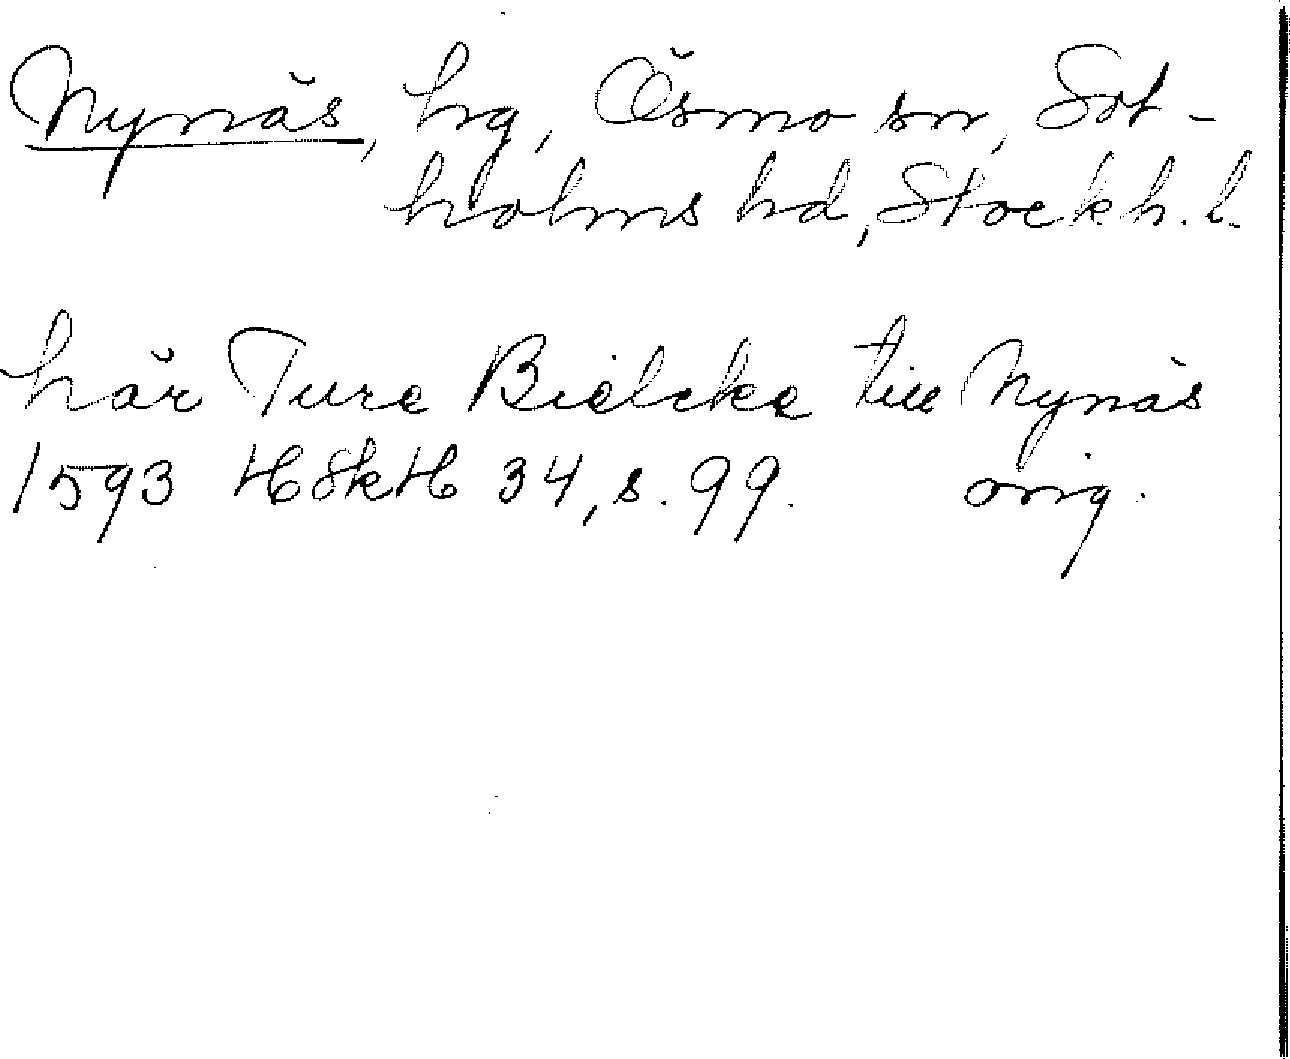 Nynäs, hg, Ösmo sn, Sot-
holms hd, Stockh. l.
här Ture Bielcke till Nynäs
1593 HSkH 34, s. 99. orig.